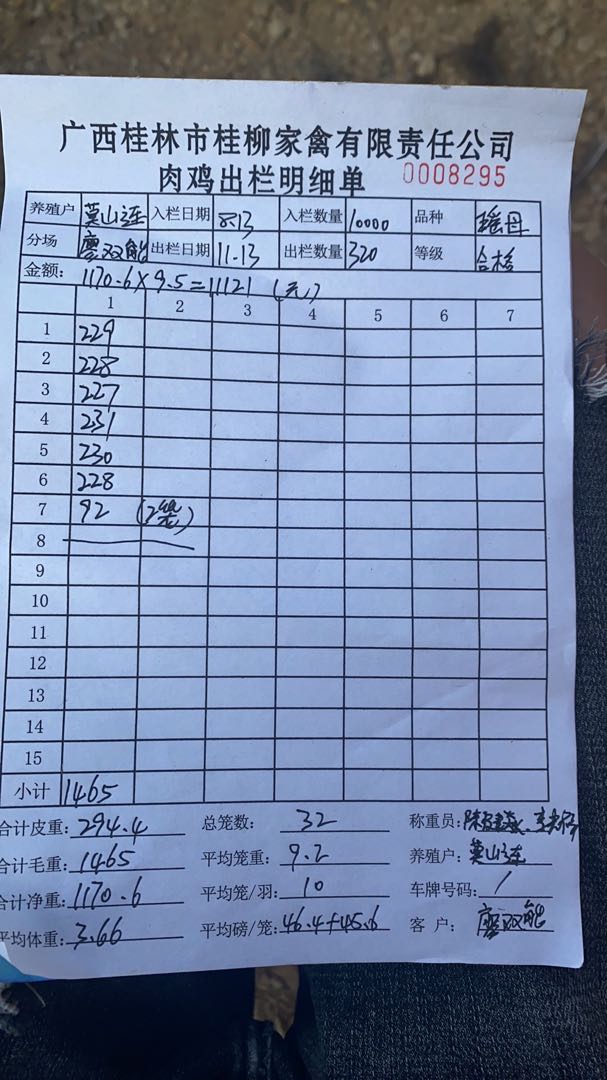 广西桂林市桂柳家禽有限责任公司
肉鸡出栏明细单 0008295
养殖户 莫山连 入栏日期 8.13 入栏数量 10000 品种 瑶丹
分场 廖双能 出栏日期 11.13 出栏数量 320 等级 合格
金额: 1170.6×9.5=11121 (元)
1 2 3 4 5 6 7
1 229
2 228
3 227
4 231
5 230
6 228
7 92 (2笼)
8
9
10
11
12
13
14
15
小计 1465
合计皮重: 294.4 总笼数: 32 称重员:
合计毛重: 1465 平均笼重: 9.2 养殖户: 莫山连
合计净重: 1170.6 平均笼/羽: 10 车牌号码: /
平均体重: 3.66 平均磅/笼: 46.4+45.6 客户: 廖双能